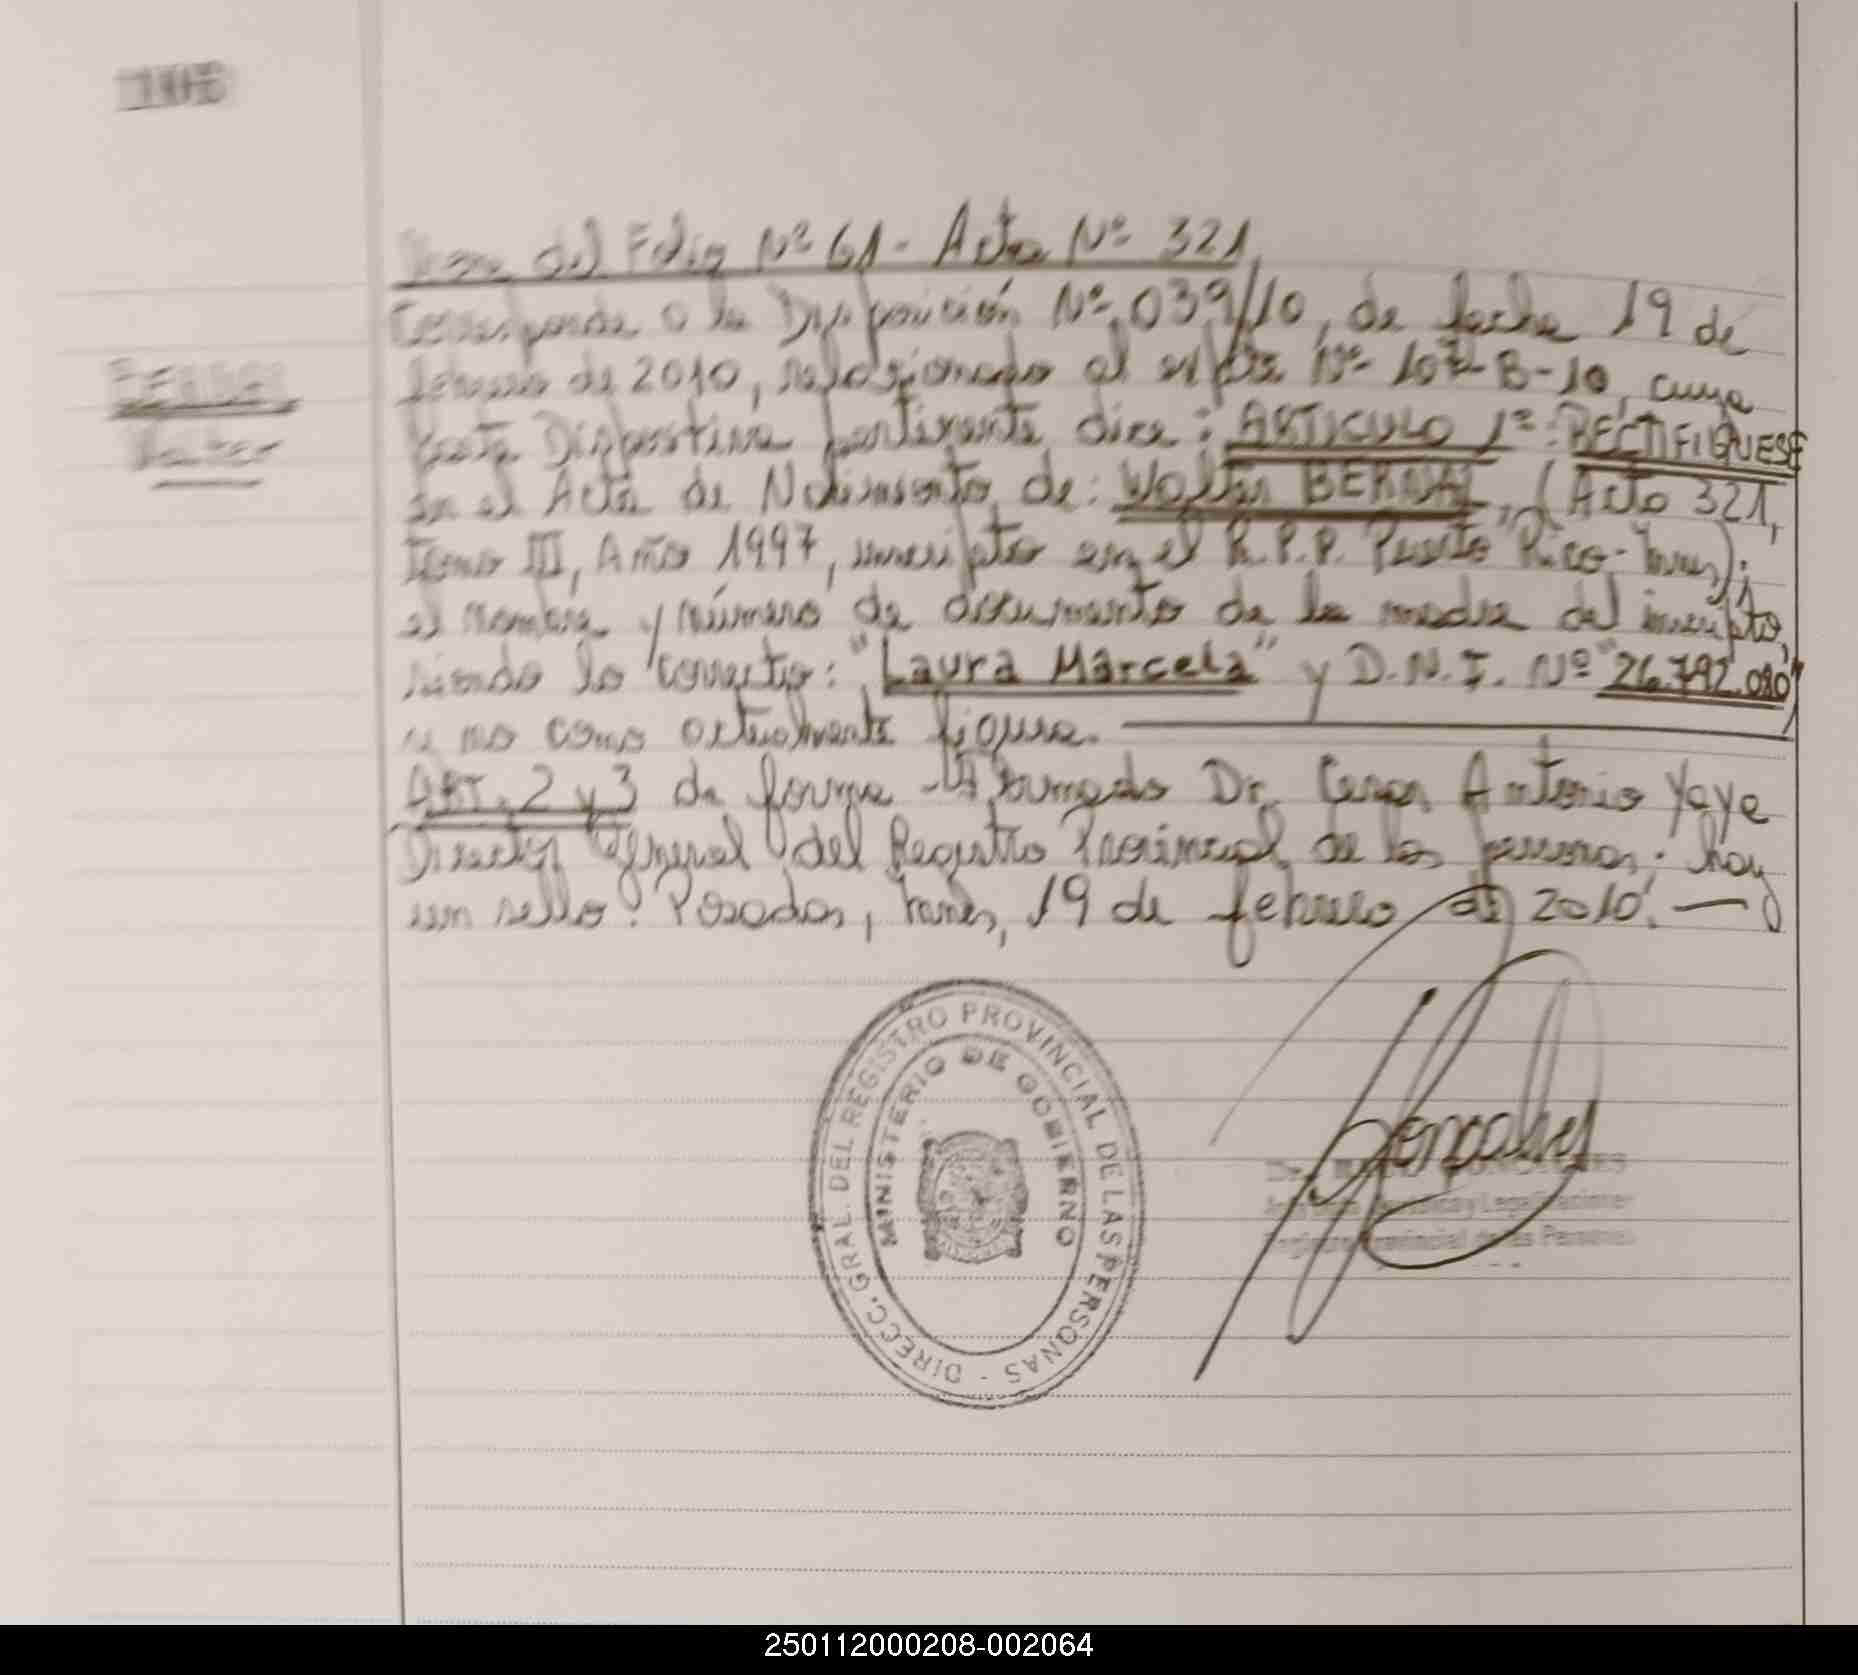 BERNAL
Walter
Viene del Folio Nº 61 - Acta Nº 321
Corresponde a la Disposición Nº 039/10, de fecha 19 de
febrero de 2010, relacionado al expte Nº 107-B-10, cuya
parte Dispositiva pertinente dice: ARTICULO 1º: RECTIFIQUESE
en el Acta de Nacimiento de: Walter BERNAL, (Acta 321,
Tomo III, Año 1997, inscripto en el R.P.P. Puerto Rico-Mnes);
el nombre y número de documento de la madre del inscripto,
siendo lo correcto: "Laura Marcela" y D.N.I. Nº "26.792.080"
y no como actualmente figura.
ART. 2 y 3 de forma - Firmado Dr. Cesar Antonio Yaya
Director General del Registro Provincial de las personas; hay
un sello. Posadas, Mnes, 19 de febrero de 2010.
DIRECC. GRAL. DEL REGISTRO PROVINCIAL DE LAS PERSONAS -
MINISTERIO DE GOBIERNO
Gonçalves
y Legalizaciones
Registro Provincial de las Personas
250112000208-002064